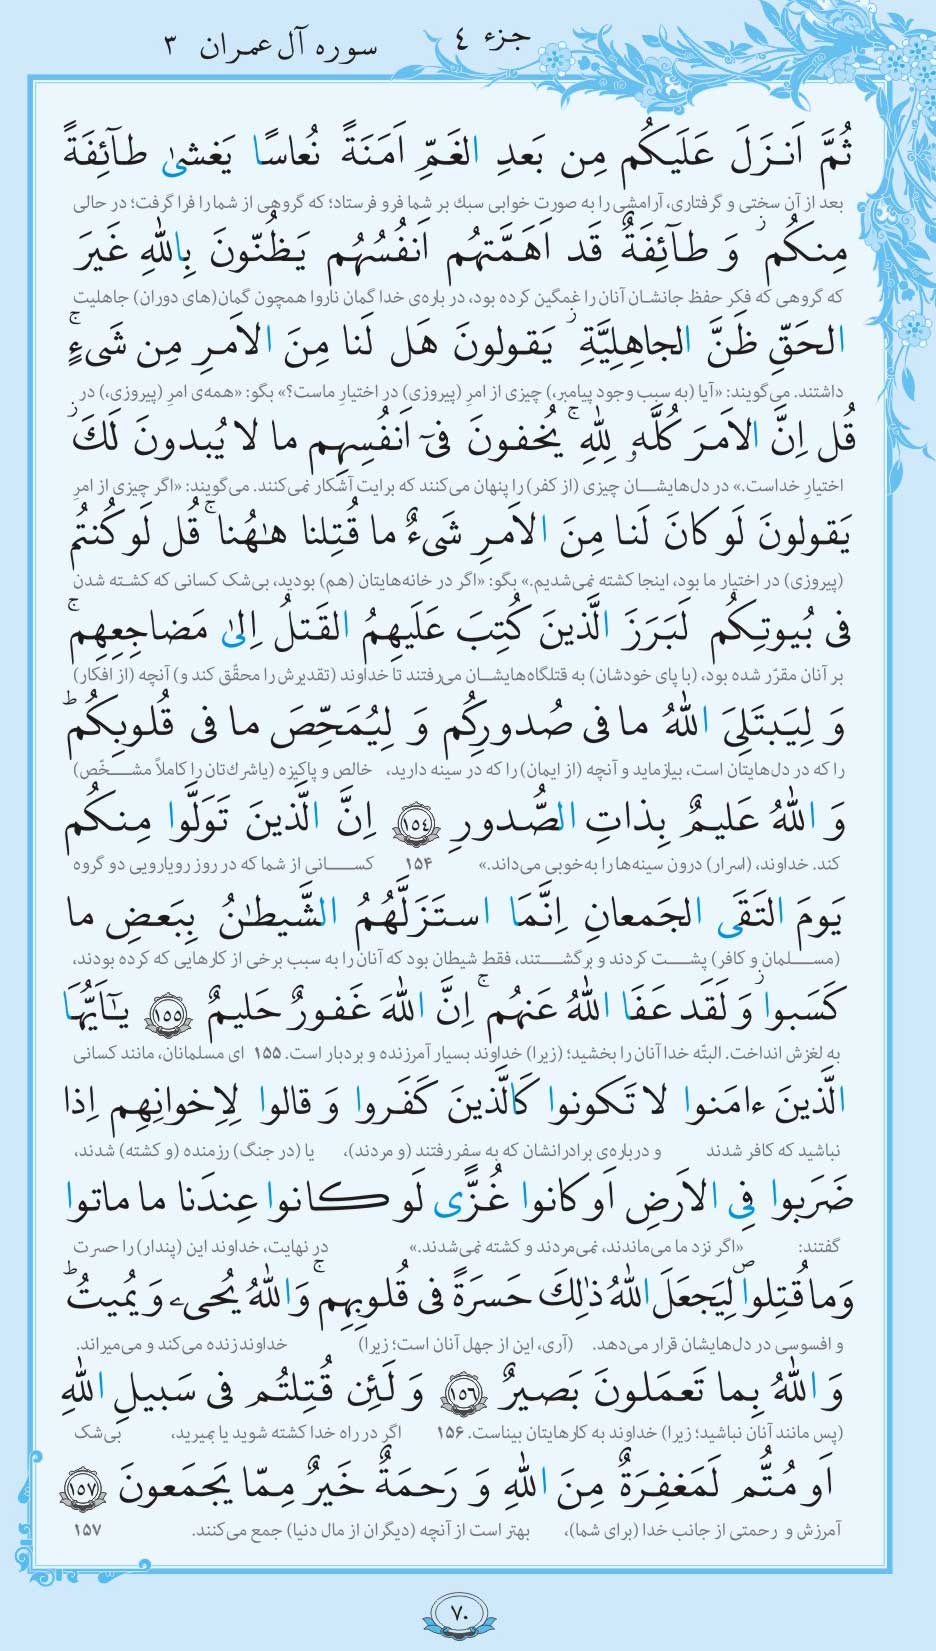 جزء ٤
سوره آل عمران ٣
ثُمَّ اَنزَلَ عَلَيكُم مِن بَعدِ الغَمِّ اَمَنَةً نُعاسًا يَغشىٰ طآئِفَةً
بعد از آن سختی و گرفتاری، آرامشی را به صورت خوابی سبک بر شما فرو فرستاد؛ که گروهی از شما را فرا گرفت؛ در حالی
مِنكُم ۖ وَ طآئِفَةٌ قَد اَهَمَّتهُم اَنفُسُهُم يَظُنّونَ بِاللهِ غَيرَ
که گروهی که فکرِ حفظ جانشان آنان را غمگین کرده بود، در باره‌ی خدا گمان ناروا همچون گمان(های دوران) جاهلیت
الحَقِّ ظَنَّ الجاهِلِيَّةِ ۖ يَقولونَ هَل لَنا مِنَ الاَمرِ مِن شَىءٍ ۚ
داشتند. می‌گویند: «آیا (به سبب وجود پیامبر،) چیزی از امر (پیروزی) در اختیارِ ماست؟» بگو: «همه‌ی امرِ (پیروزی،) در
قُل اِنَّ الاَمرَ كُلَّهٗ لِلّٰهِ ۗ يُخفونَ فىٓ اَنفُسِهِم ما لا يُبدونَ لَكَ ۖ
اختیارِ خداست.» در دل‌هایشان چیزی (از کفر) را پنهان می‌کنند که برایت آشکار نمی‌کنند. می‌گویند: «اگر چیزی از امرِ
يَقولونَ لَو كانَ لَنا مِنَ الاَمرِ شَىءٌ ما قُتِلنا هٰهُنا ۗ قُل لَو كُنتُم
(پیروزی) در اختیار ما بود، اینجا کشته نمی‌شدیم.» بگو: «اگر در خانه‌هایتان (هم) بودید، بی‌شک کسانی که کشته شدن
فى بُيوتِكُم لَبَرَزَ الَّذينَ كُتِبَ عَلَيهِمُ القَتلُ اِلىٰ مَضاجِعِهِم ۚ
بر آنان مقرّر شده بود، (با پای خودشان) به قتلگاه‌هایشان می‌رفتند تا خداوند (تقدیرش را محقّق کند و) آنچه (از افکار)
وَ لِيَبتَلِىَ اللهُ ما فى صُدورِكُم وَ لِيُمَحِّصَ ما فى قُلوبِكُم ۗ
را که در دل‌هایتان است، بیازماید و آنچه (از ایمان) را که در سینه دارید، خالص و پاکیزه (یا شرک‌تان را کاملاً مشخّص)
وَ اللهُ عَليمٌ بِذاتِ الصُّدورِ ١٥٤ اِنَّ الَّذينَ تَوَلَّوا مِنكُم
کند. خداوند، (اسرار) درون سینه‌ها را به‌خوبی می‌داند.» ۱۵۴ کسانی از شما که در روز رویارویی دو گروه
يَومَ التَقَى الجَمعانِ اِنَّمَا استَزَلَّهُمُ الشَّيطٰنُ بِبَعضِ ما
(مسلمان و کافر) پشت کردند و برگشتند، فقط شیطان بود که آنان را به سبب برخی از کارهایی که کرده بودند،
كَسَبوا ۖ وَ لَقَد عَفَا اللهُ عَنهُم ۗ اِنَّ اللهَ غَفورٌ حَليمٌ ١٥٥ يٰٓاَيُّهَا
به لغزش انداخت. البتّه خدا آنان را بخشید؛ (زیرا) خداوند بسیار آمرزنده و بردبار است. ۱۵۵ ای مسلمانان، مانند کسانی
الَّذينَ ءامَنوا لا تَكونوا كَالَّذينَ كَفَروا وَ قالوا لِاِخوانِهِم اِذا
نباشید که کافر شدند و درباره‌ی برادرانشان که به سفر رفتند (و مردند)، یا (در جنگ) رزمنده (و کشته) شدند،
ضَرَبوا فِى الاَرضِ اَو كانوا غُزًّى لَو كانوا عِندَنا ما ماتوا
گفتند: «اگر نزد ما می‌ماندند، نمی‌مردند و کشته نمی‌شدند.» در نهایت، خداوند این (پندار) را حسرت
وَ ما قُتِلوا ۖ لِيَجعَلَ اللهُ ذٰلِكَ حَسرَةً فى قُلوبِهِم ۗ وَ اللهُ يُحيى وَ يُميتُ ۗ
و افسوسی در دل‌هایشان قرار می‌دهد. (آری، این از جهل آنان است؛ زیرا) خداوند زنده می‌کند و می‌میراند.
وَ اللهُ بِما تَعمَلونَ بَصيرٌ ١٥٦ وَ لَئِن قُتِلتُم فى سَبيلِ اللهِ
(پس مانند آنان نباشید؛ زیرا) خداوند به کارهایتان بیناست. ۱۵۶ اگر در راه خدا کشته شوید یا بمیرید، بی‌شک
اَو مُتُّم لَمَغفِرَةٌ مِنَ اللهِ وَ رَحمَةٌ خَيرٌ مِمّا يَجمَعونَ ١٥٧
آمرزش و رحمتی از جانب خدا (برای شما)، بهتر است از آنچه (دیگران از مال دنیا) جمع می‌کنند. ۱۵۷
٧٠